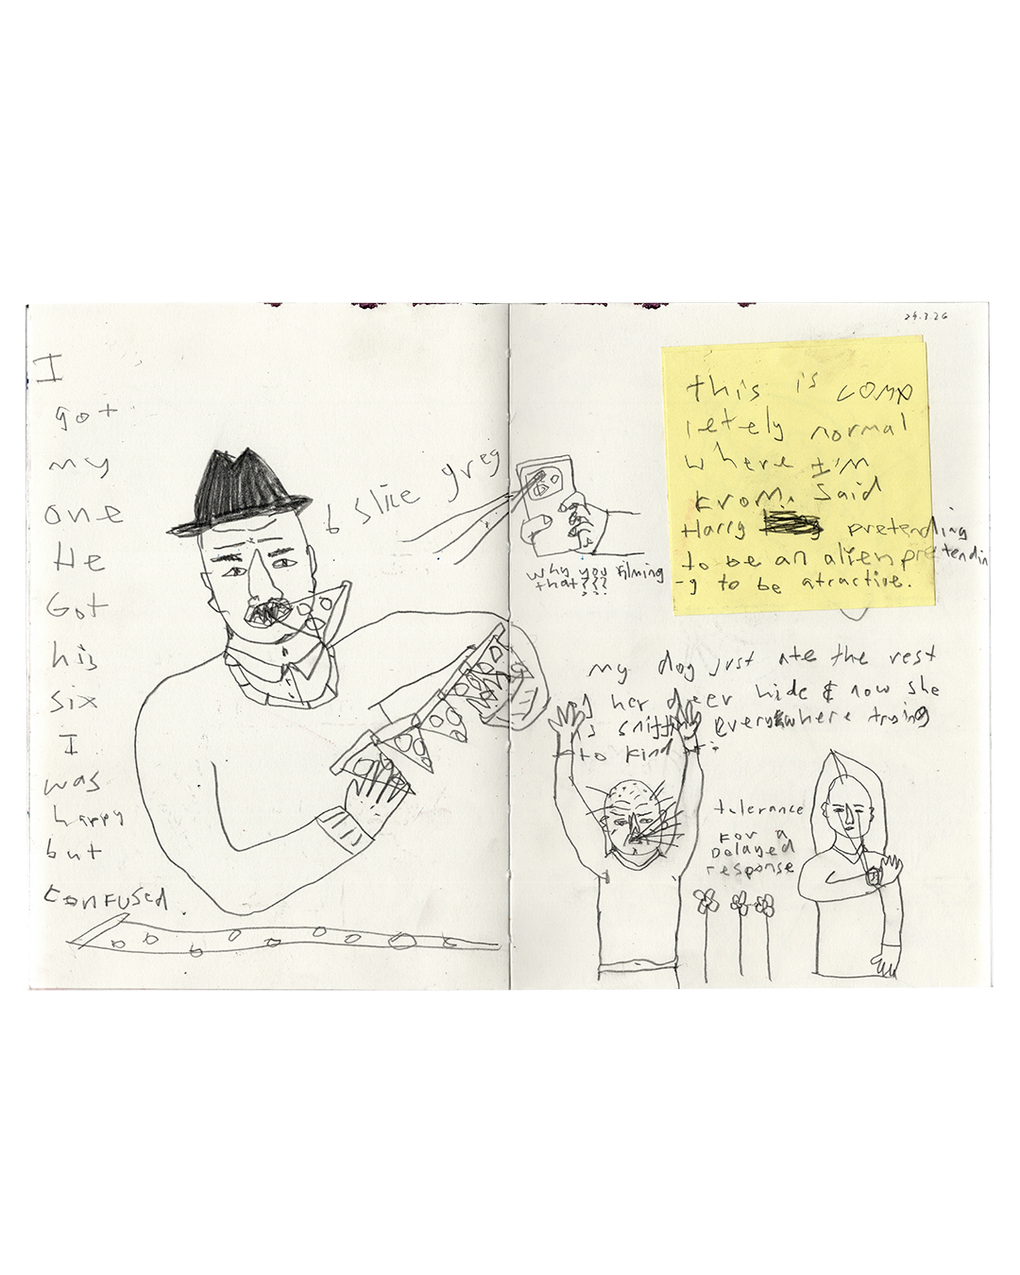 I
got
my
one
He
Got
his
six
I
was
happy
but
confused.
6 slice greg
24.3.26
this is comp
letely normal
where I'm
from. Said
Harry pretending
to be an alien pretendin
-g to be atractive.
why you filming
that???
my dog just ate the rest
of her deer hide & now she
is sniffing everywhere trying
to find it.
tolerance
for a
Delayed
response